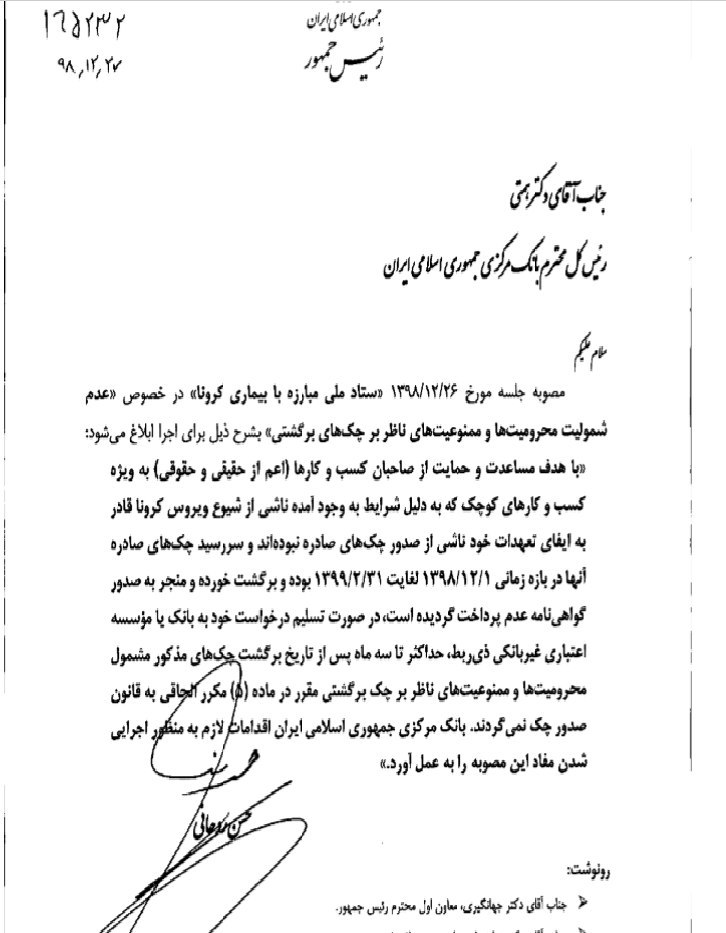 ۱۶۵۲۳۲
۹۸,۱۲,۲۷
جمهوری اسلامی ایران
رئیس جمهور
جناب آقای دکتر همتی
رئیس کل محترم بانک مرکزی جمهوری اسلامی ایران
سلام علیکم
مصوبه جلسه مورخ ۱۳۹۸/۱۲/۲۶ «ستاد ملی مبارزه با بیماری کرونا» در خصوص «عدم
شمولیت محرومیت‌ها و ممنوعیت‌های ناظر بر چک‌های برگشتی» بشرح ذیل برای اجرا ابلاغ می‌شود:
«با هدف مساعدت و حمایت از صاحبان کسب و کارها (اعم از حقیقی و حقوقی) به ویژه
کسب و کارهای کوچک که به دلیل شرایط به وجود آمده ناشی از شیوع ویروس کرونا قادر
به ایفای تعهدات خود ناشی از صدور چک‌های صادره نبوده‌اند و سررسید چک‌های صادره
آنها در بازه زمانی ۱۳۹۸/۱۲/۱ لغایت ۱۳۹۹/۲/۳۱ بوده و برگشت خورده و منجر به صدور
گواهی‌نامه عدم پرداخت گردیده است، در صورت تسلیم درخواست خود به بانک یا مؤسسه
اعتباری غیربانکی ذی‌ربط، حداکثر تا سه ماه پس از تاریخ برگشت چک‌های مذکور مشمول
محرومیت‌ها و ممنوعیت‌های ناظر بر چک برگشتی مقرر در ماده (۵) مکرر الحاقی به قانون
صدور چک نمی‌گردند. بانک مرکزی جمهوری اسلامی ایران اقدامات لازم به منظور اجرایی
شدن مفاد این مصوبه را به عمل آورد.»
حسن روحانی
رونوشت:
جناب آقای دکتر جهانگیری، معاون اول محترم رئیس جمهور.